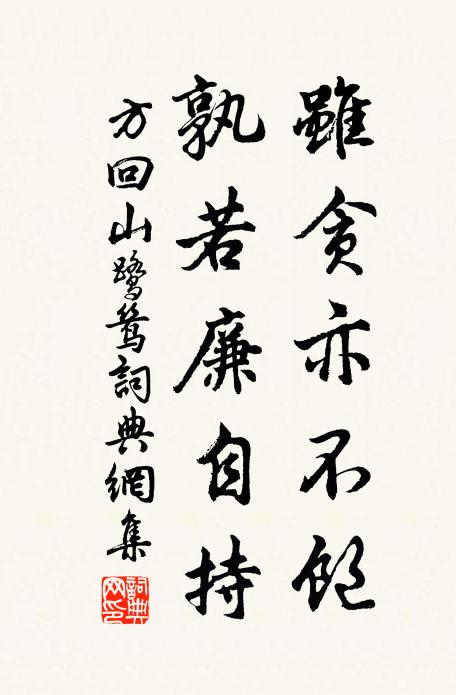 雖貪亦不飽
孰若廉自持
方回山鷺鷥詞典網集
詞典網印